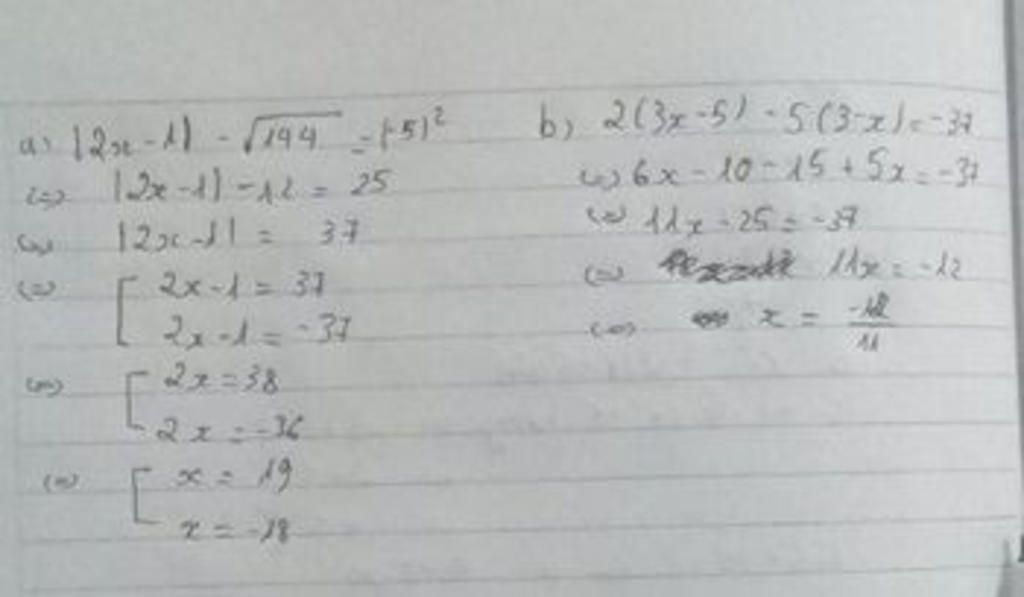 a) |2x - 1| - √144 = (-5)²
(=) |2x - 1| - 12 = 25
(=) |2x - 1| = 37
(=) [ 2x - 1 = 37
2x - 1 = -37
(=) [ 2x = 38
2x = -36
(=) [ x = 19
x = -18
b) 2(3x - 5) - 5(3 - x) = -37
(=) 6x - 10 - 15 + 5x = -37
(=) 11x - 25 = -37
(=) 11x = -12
(=) x = -12/11